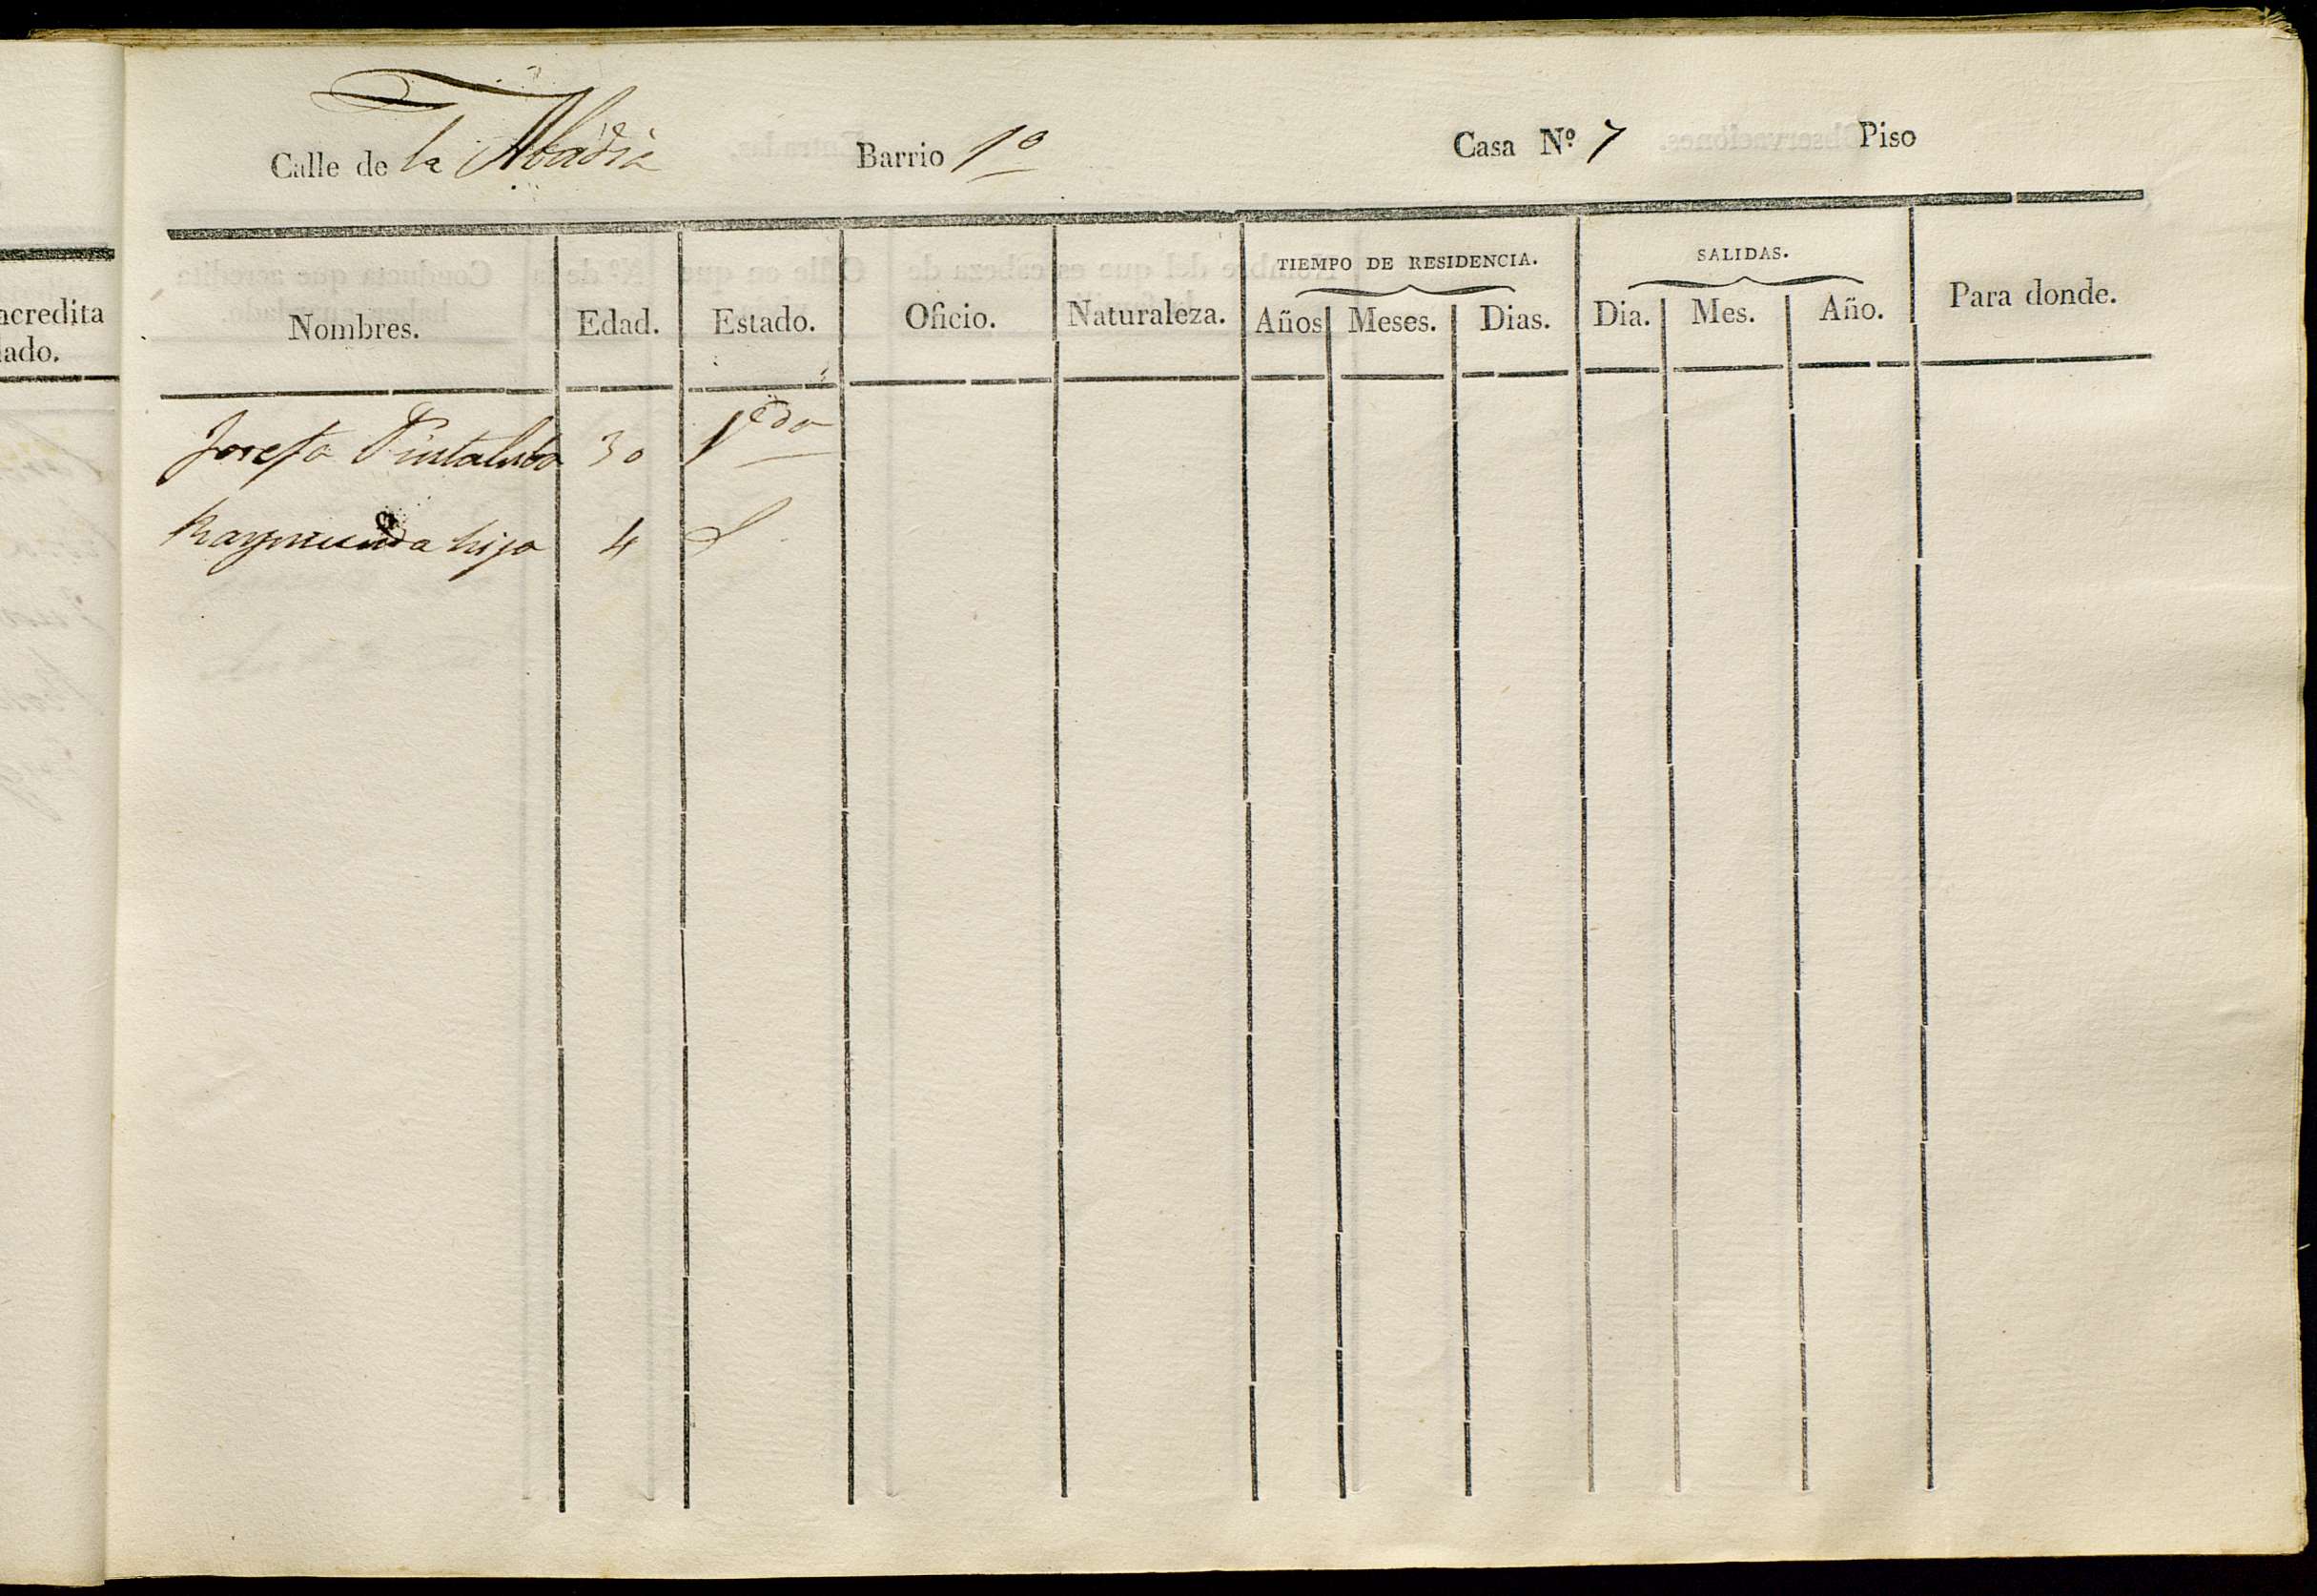 Calle de la Abadia Barrio 1º Casa Nº 7 Piso
acredita
lado.
TIEMPO DE RESIDENCIA. SALIDAS.
Nombres. Edad. Estado. Oficio. Naturaleza. Años Meses. Dias. Dia. Mes. Año. Para donde.
Josefa Pintaluba 30 Vda
Raymunda hija 4 S